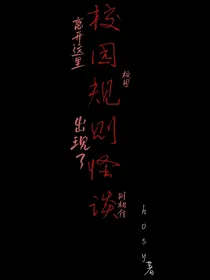 校园规则怪谈
离开这里
校园
出现了
别相信
hosy著